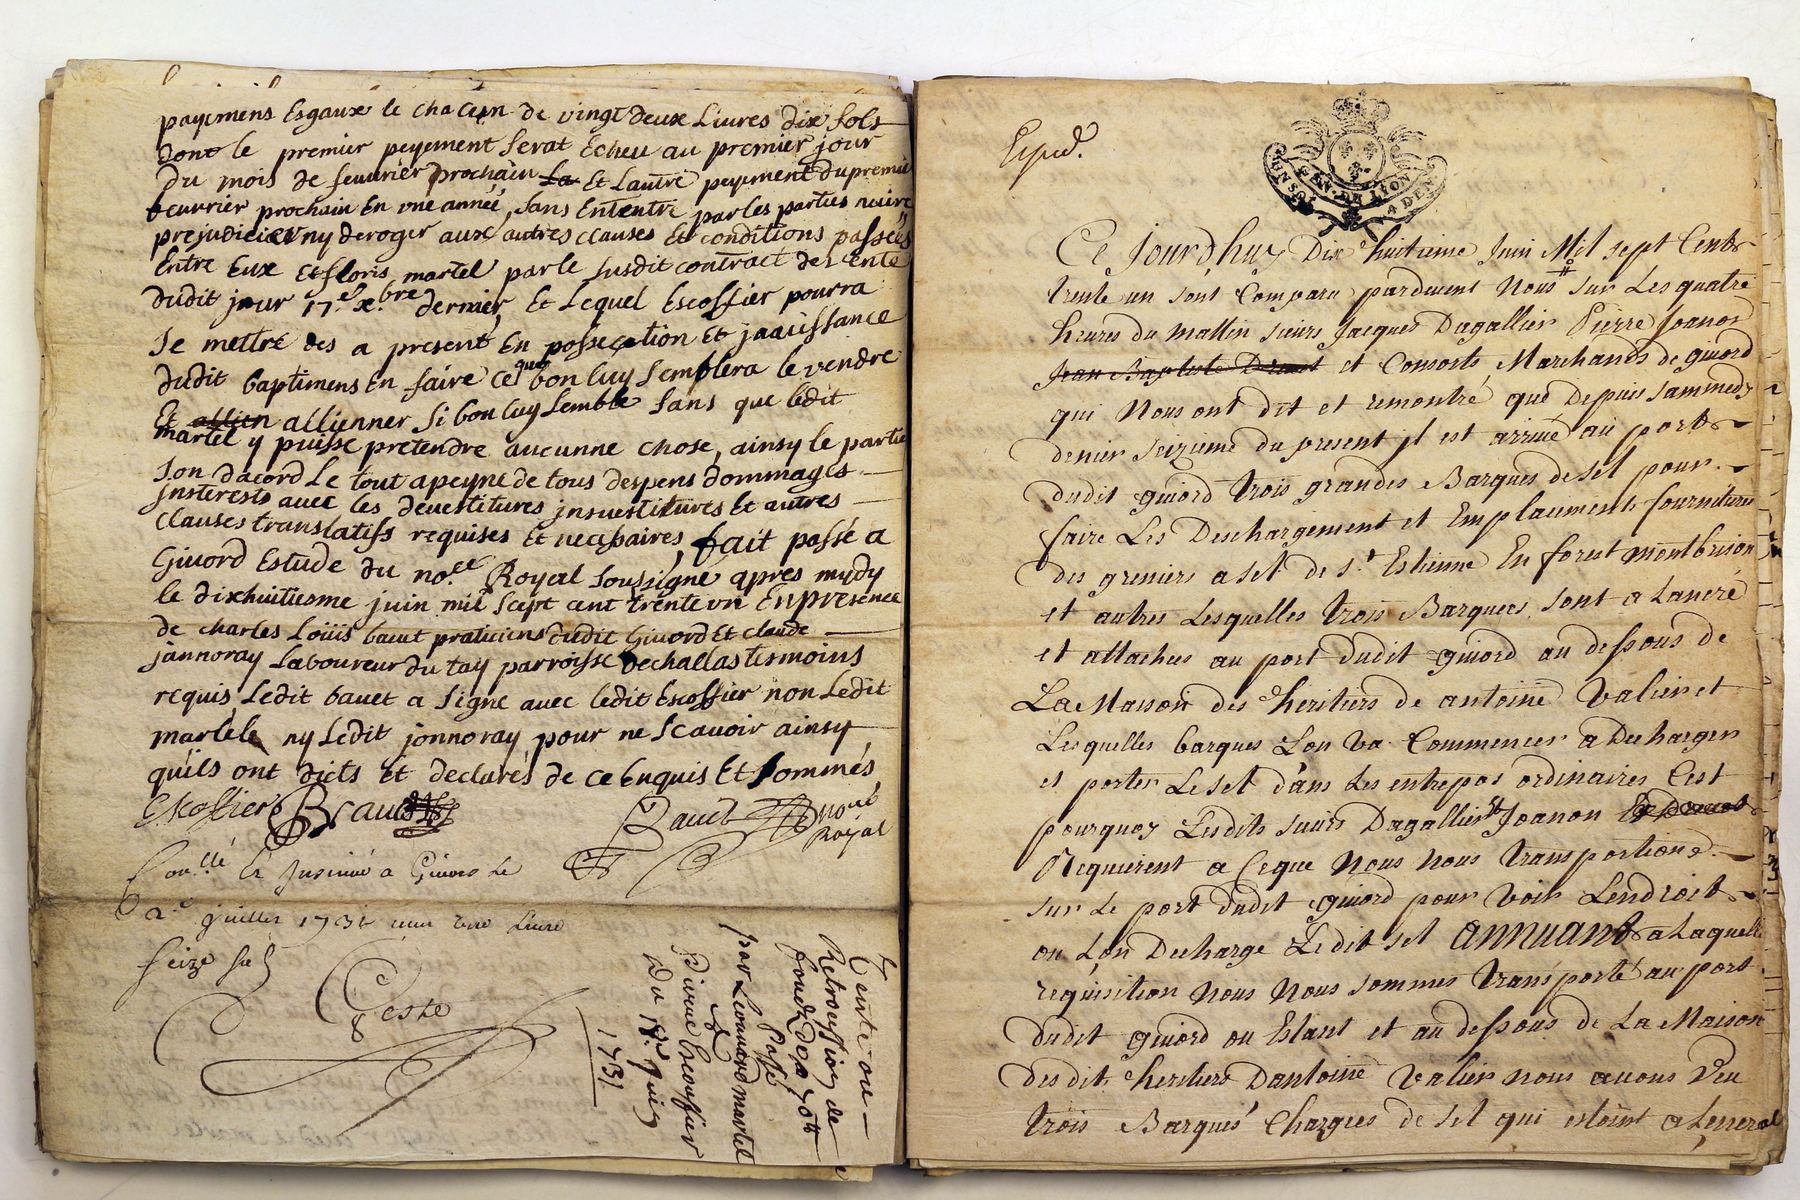 payemens Esgaux le chacun de vingt deux Livres dix sols
dont le premier peyement serat Echeu au premier jour
du mois de feuvrier prochain La Et Lautre peyement du premier
feuvrier prochain En une année, sans Ententre par les parties nuire
prejudicier ny deroger aux autres clauses Et conditions passées
Entre Eux Et floris martel par le susdit contract de vente
dudit jour 17.e x.bre dernier, Et Lequel Escoffier pourra
Se mettre des a present En possecption Et jaouissance
dudit baptimens En faire ce que bon luy semblera le vendre
Et allien allienner si bon luy semble sans que ledit
martel y puisse pretendre aucunne chose, ainsy le partie
son dacord Le tout apeyne de tous despens dommages
jnsterests avec les devestitures jnvestitures Et autres
clauses translatifs requises Et necessaires, fait passé a
Givord Estude du no.re Royal soussigne apres mydy
le dixhuitiesme juin mil sept cent trente un En presence
de charles Loüis bauet praticiens dudit Givord Et claude
jannoray Laboureur du tay parroisse de challas tesmoins
requis, Ledit bauet a signe avec ledit Escoffier non Ledit
martele ny Ledit jonnoray pour ne scavoir ainsy
quils ont dicts Et declarés de ce Enquis Et sommés
Escoffier
Bauet
no.re
Royal
Con.llé Et Jnsinué a Givors Le
2.e juillet 1731 une Livre
seize sols
Ceste
Vente ou
Retrocession de
fond De 90 ₶
Passé
par Leonnard martel
a
Pierre Escouffier
Du 18.e Juin
1731
Exped.
GEN. DE LYON
UN SOL 4 DEN
Ce Jourdhuy Dix huitieme Juin Mil sept Cents
trente un sont Comparu pardevent Nous # sur Les quatre
heures du mattin sieurs Jacques Dagallier Pierre Joanon
Jean Baptiste et Consorts Marchands de givord
qui Nous ont dit et remontré que Depuis sammedy
denier seizieme du present jl est arrivé au port
dudit givord trois grandes Barques de sel pour
faire Les Deschargement et Emplacement fournitures
des greniers a sel de s.t Estienne En forest montbrison
et autres Lesquelles trois Barques sont a Lancré
et attachees au port dudit givord au dessous de
La Maison des heritiers de antoine Valier et
Lesquelles barques Lon va Commencer a Decharger
et porter Le sel dans Les entrepos ordinaires Cest
pourquoy Lesdits sieurs Dagallier et Joanon
Requierent a Ceque Nous nous transportions
sur Le port dudit givord pour voir Lendroit
ou Lon Decharge Ledit sel annuant a Laquelle
requisition Nous Nous sommes transporté au port
dudit givord ou Estant et au dessous de La Maison
desdit heritiers Dantoine Valier nous avons Veu
trois Barques Chargees de sel qui estoint a